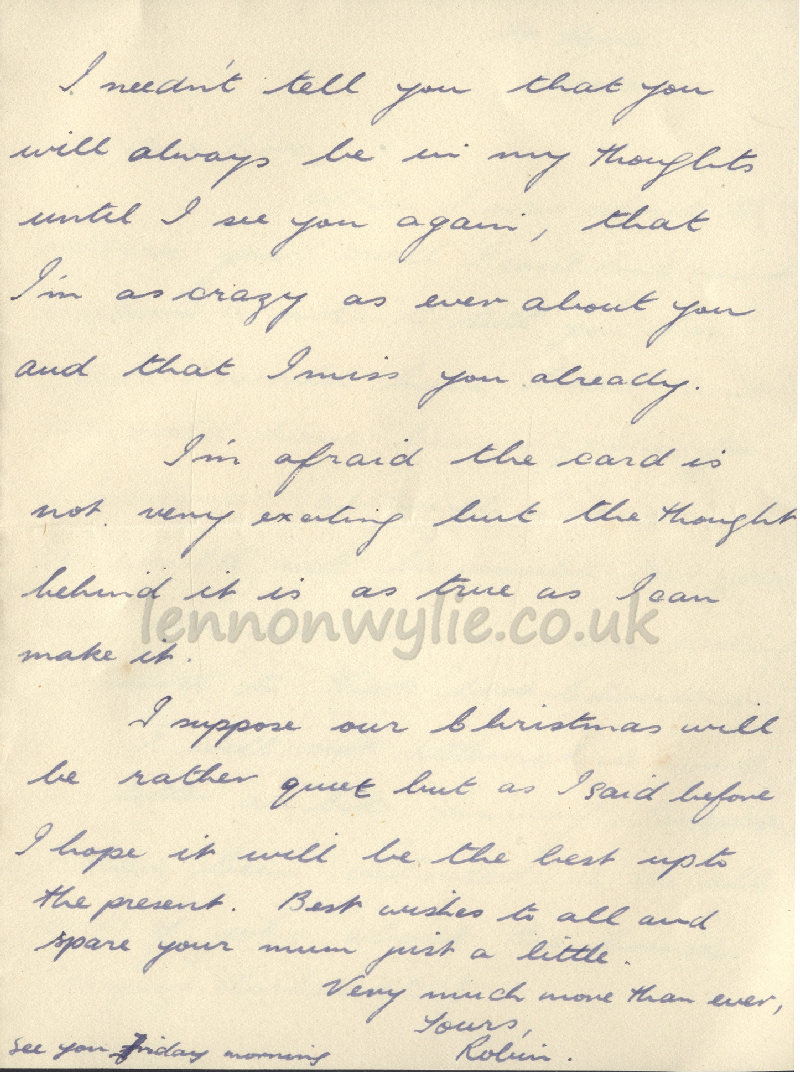 I needn't tell you that you
will always be in my thoughts
until I see you again, that
I'm as crazy as ever about you
and that I miss you already.
I'm afraid the card is
not very exciting but the thought
behind it is as true as I can
lennonwylie.co.uk
make it.
I suppose our Christmas will
be rather quiet but as I said before
I hope it will be the best up to
the present. Best wishes to all and
spare your mum just a little.
Very much more than ever,
Yours,
Robin.
See you Friday morning